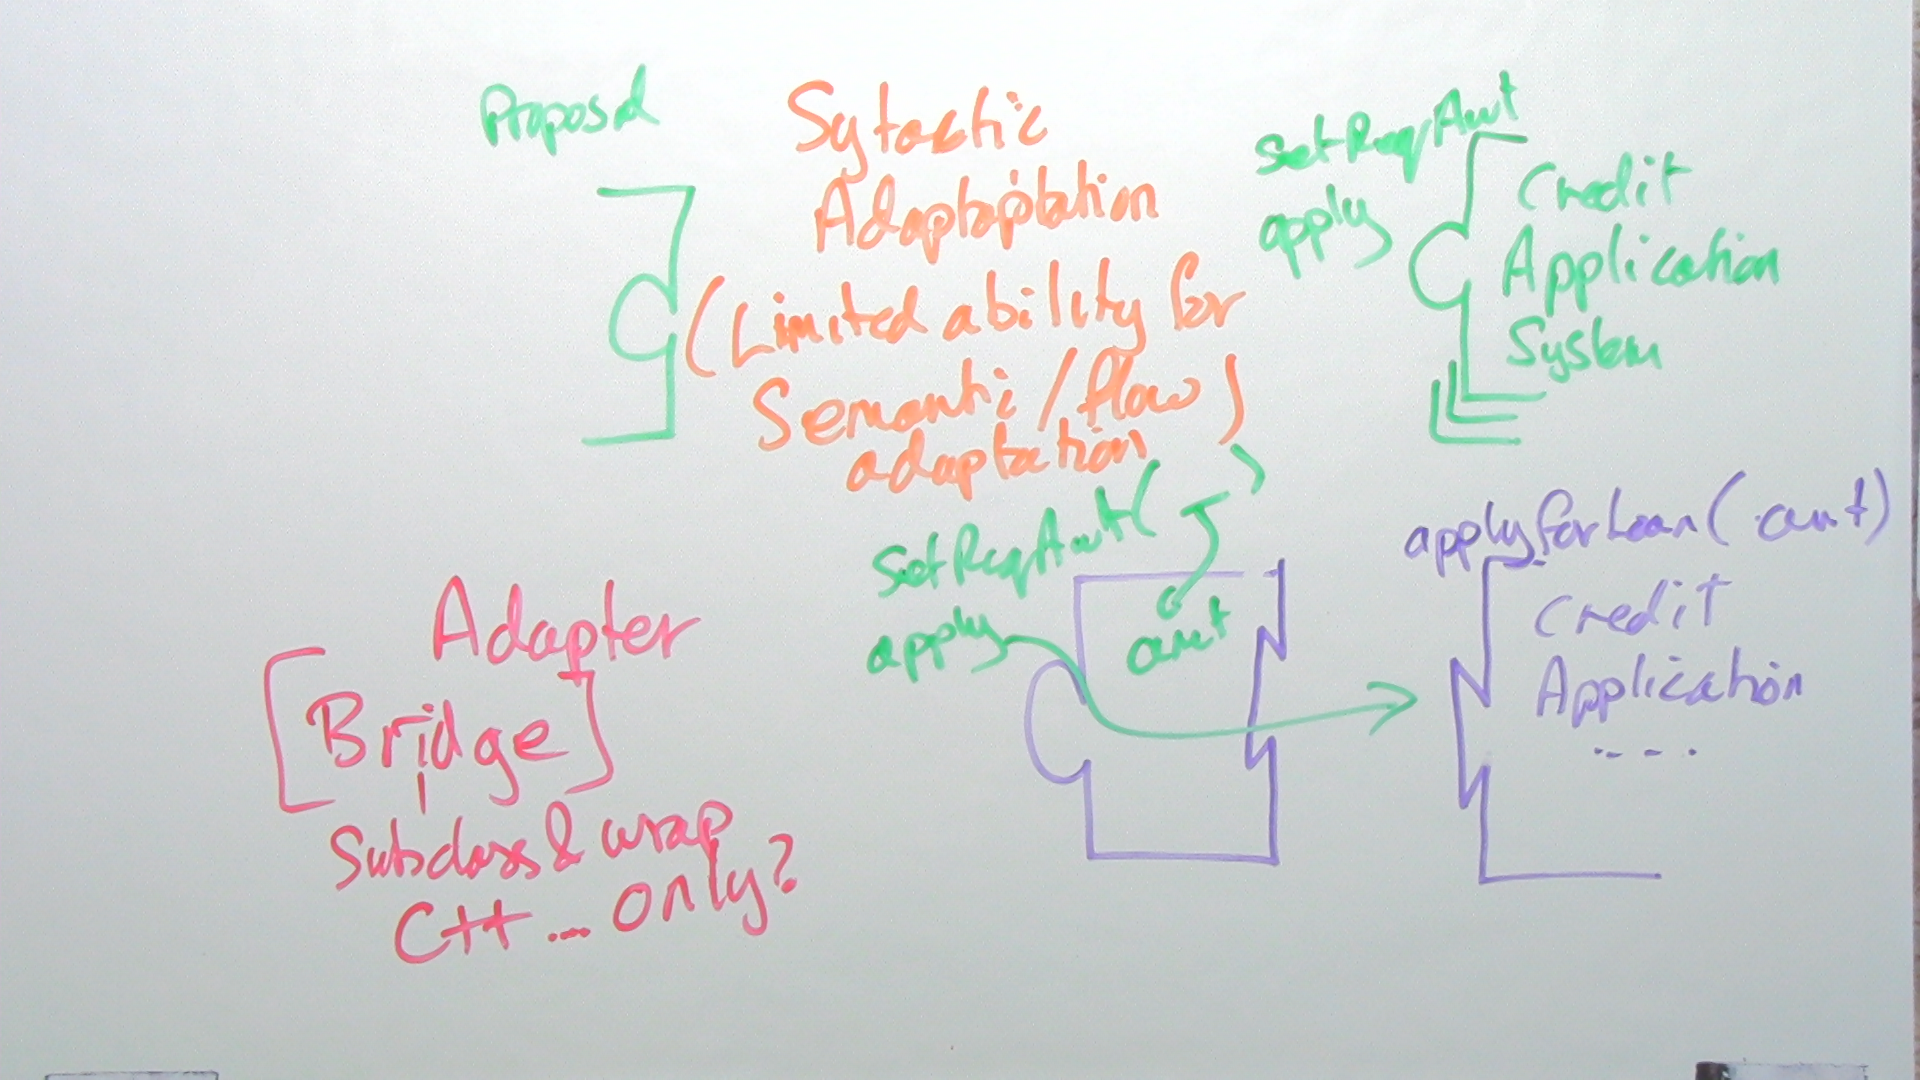 Proposal
Sytactic
Adaptaptation
(Limited ability for
Semantic/flow)
adaptation
setReqAmt
apply
Credit
Application
System
setReqAmt( )
apply
amt
applyForLoan(amt)
Credit
Application
....
Adapter
[Bridge]
Subclass & wrap
C++ ... only?